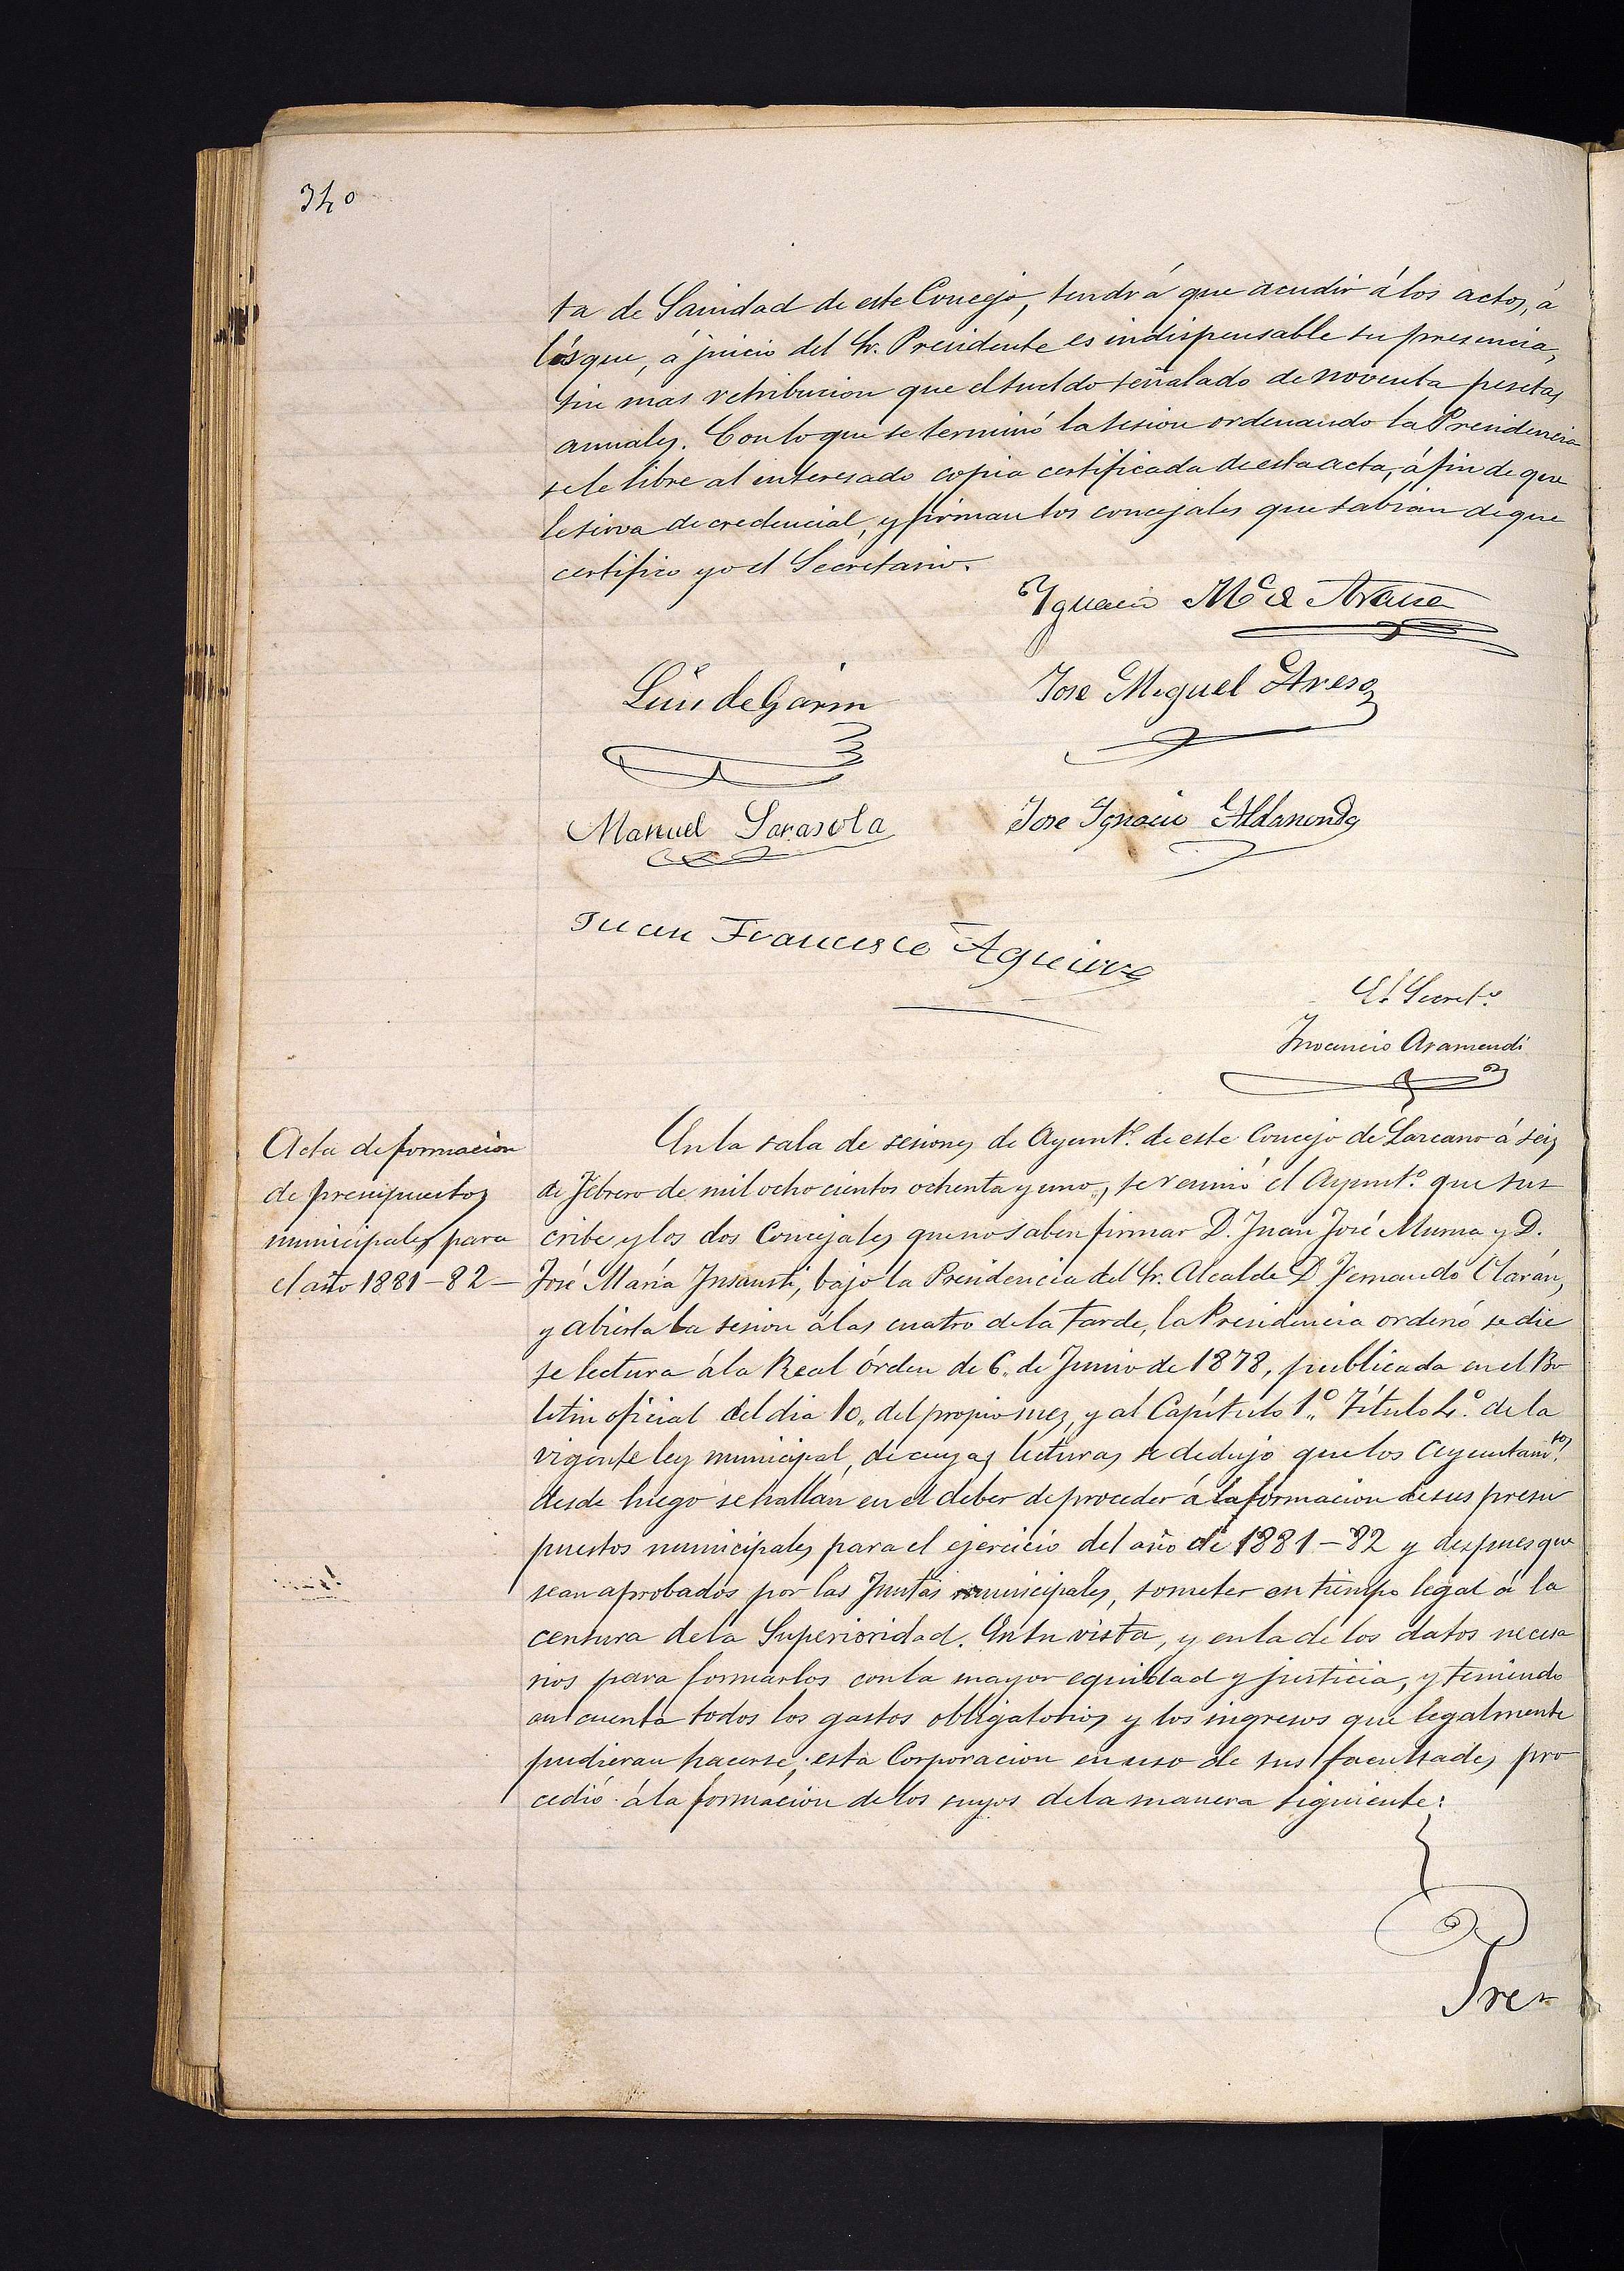 340
ta de Sanidad de este Concejo, tendrá que acudir á los actos, á
los que, á juicio del Sr. Presidente es indispensable su presencia,
sin mas retribucion que el sueldo señalado de noventa pesetas
anuales. Con lo que se terminó la sesion ordenando la Presidencia
se le libre al interesado copia certificada de esta acta, á fin de que
le sirva de credencial, y firman los concejales que sabian de que
certifico yo el Secretario.
Ygnacio Mª de Arana
Luis de Garin
Jose Miguel Areso
Manuel Sarasola
Jose Ygnacio Aldanondo
Juan Francisco Aguirre
El Secretº
Inocencio Aramendi
Acta de formacion
de presupuestos
municipales para
el año 1881-82-
En la sala de sesiones de Ayuntº de este Concejo de Lazcano á seis
de Febrero de mil ochocientos ochenta y uno, se reunió el Ayuntº que sus
cribe y los dos Concejales que no saben firmar D. Juan José Murua y D.
José María Insausti, bajo la Presidencia del Sr. Alcalde D. Fernando Olarán,
y abierta la sesion á las cuatro de la tarde, la Presidencia ordenó se die
se lectura á la Real órden de 6 de Junio de 1878, publicada en el Bo
letin oficial del dia 10 del propio mes, y al Capítulo 1º Título 4º de la
vigente ley municipal, de cuyas lecturas se dedujo que los Ayuntamtos
desde luego se hallan en el deber de proceder á la formacion de sus presu
puestos municipales para el ejercicio del año de 1881-82 y despues que
sean aprobados por las Juntas municipales, someter en tiempo legal á la
censura de la Superioridad. En su vista, y en la de los datos necesa
rios para formarlos con la mayor equidad y justicia, y teniendo
en cuenta todos los gastos obligatorios y los ingresos que legalmente
pudieran hacerse; esta Corporacion en uso de sus facultades pro
cedió á la formacion de los suyos de la manera siguiente:
Pre-